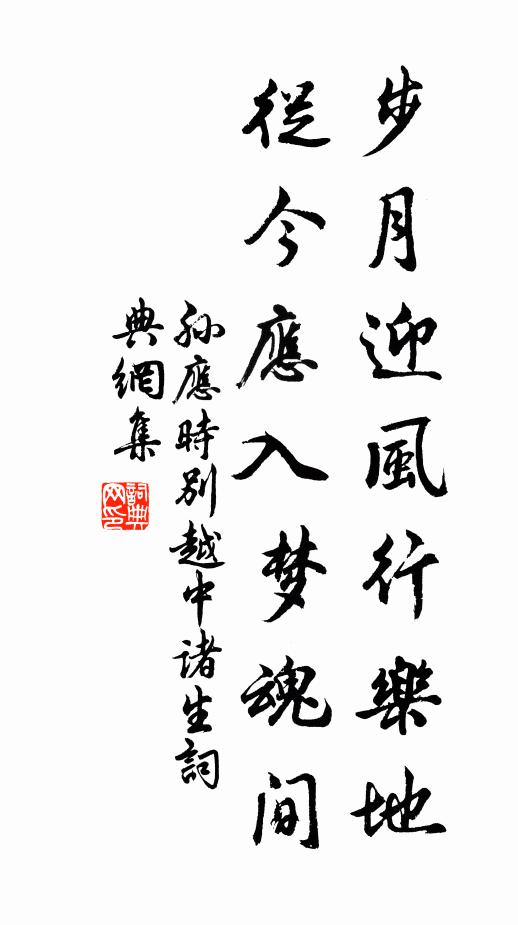 步月迎風行樂地
從今應入梦魂间
孫應時别越中诸生詞
典網集
詞典网印